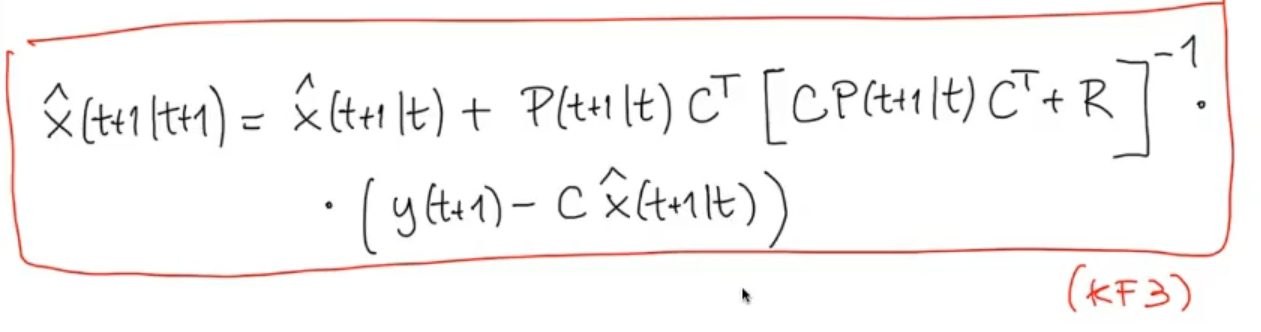 x̂(t+1|t+1) = x̂(t+1|t) + P(t+1|t) Cᵀ [CP(t+1|t) Cᵀ + R]⁻¹ ·
· (y(t+1) - C x̂(t+1|t))
(KF3)